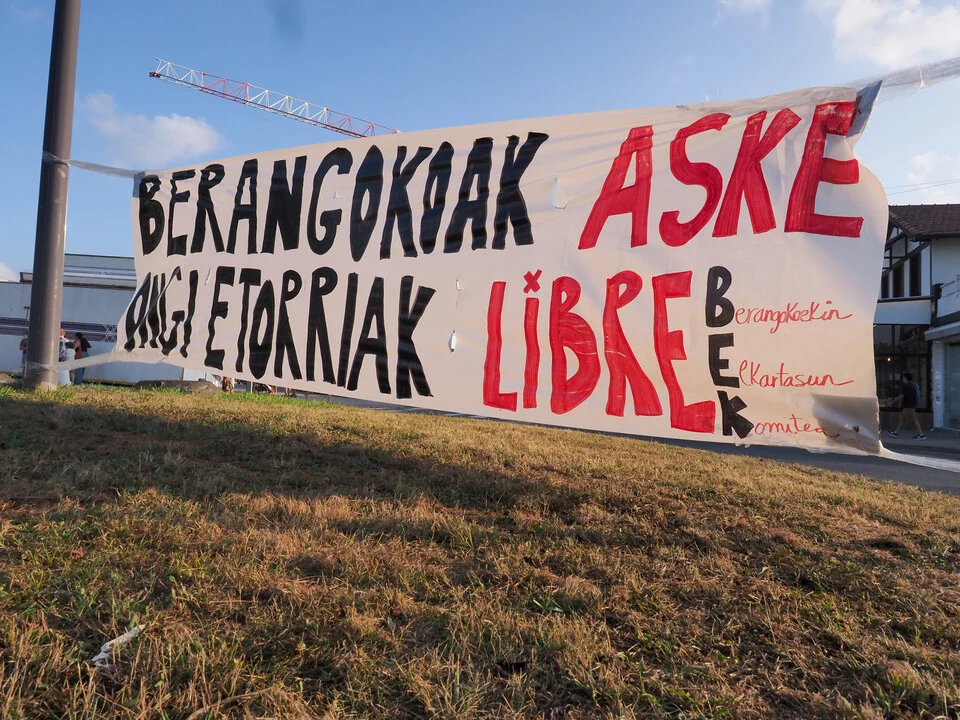 BERANGOKOAK ASKE
ONGI ETORRIAK LiBRE
Berangokoekin
Elkartasun
Komitea